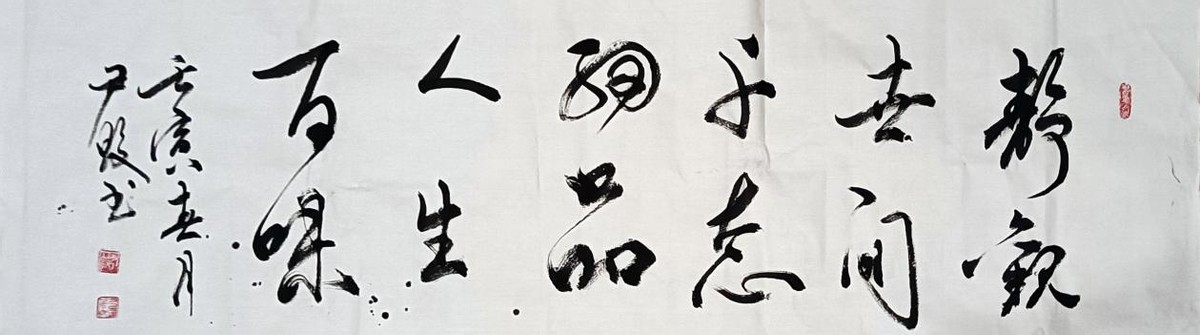 静观
世间
千态
细品
人生
百味
壬寅春月
尹毅书